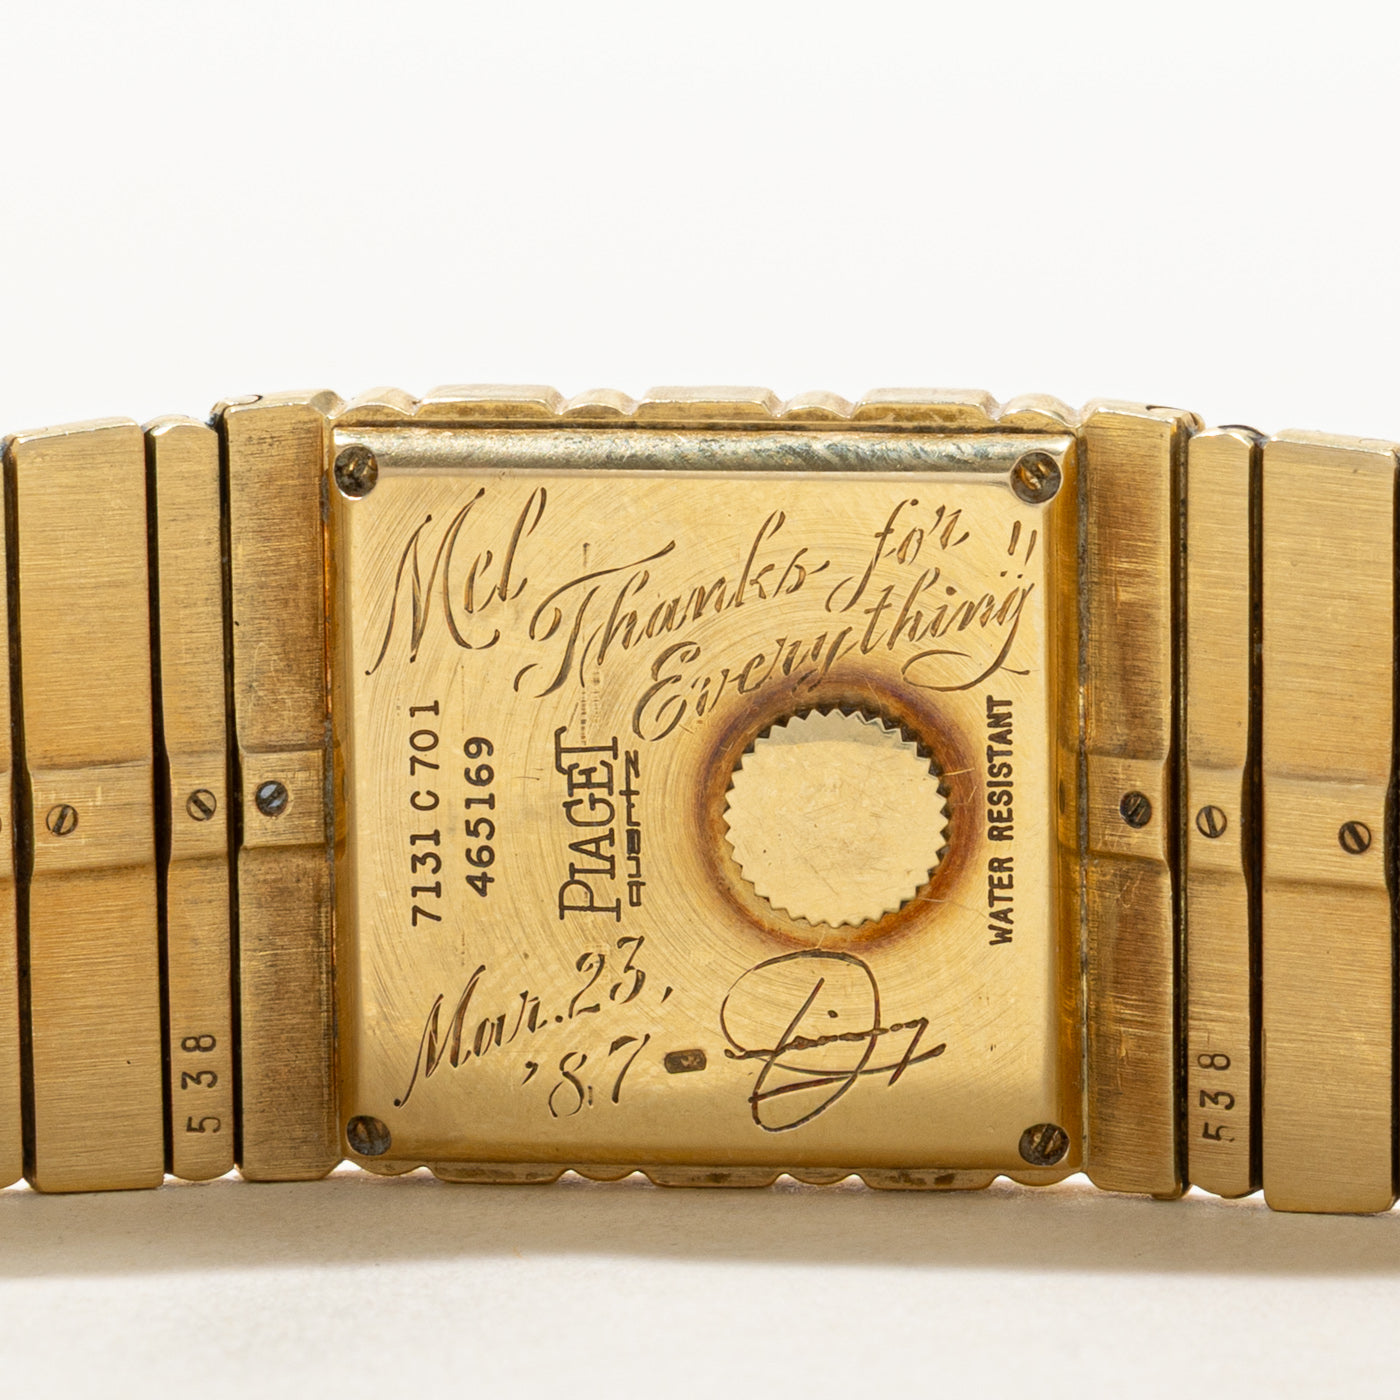 Mel
Thanks for
Everything"
7131 C 701
465169
PIAGET
quartz
WATER RESISTANT
Mar. 23,
'87
538
538